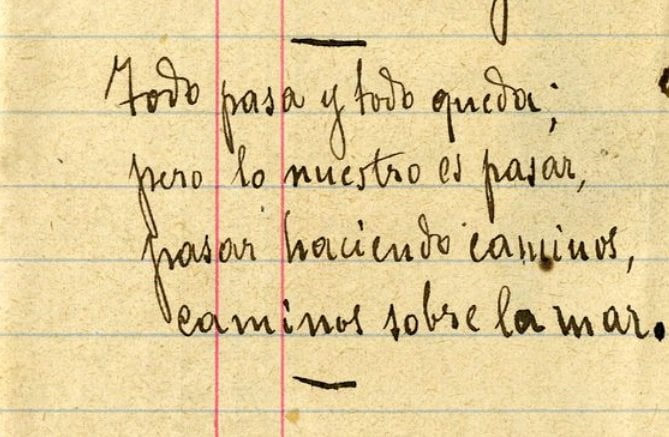 Todo pasa y todo queda;
pero lo nuestro es pasar,
pasar haciendo caminos,
caminos sobre la mar.